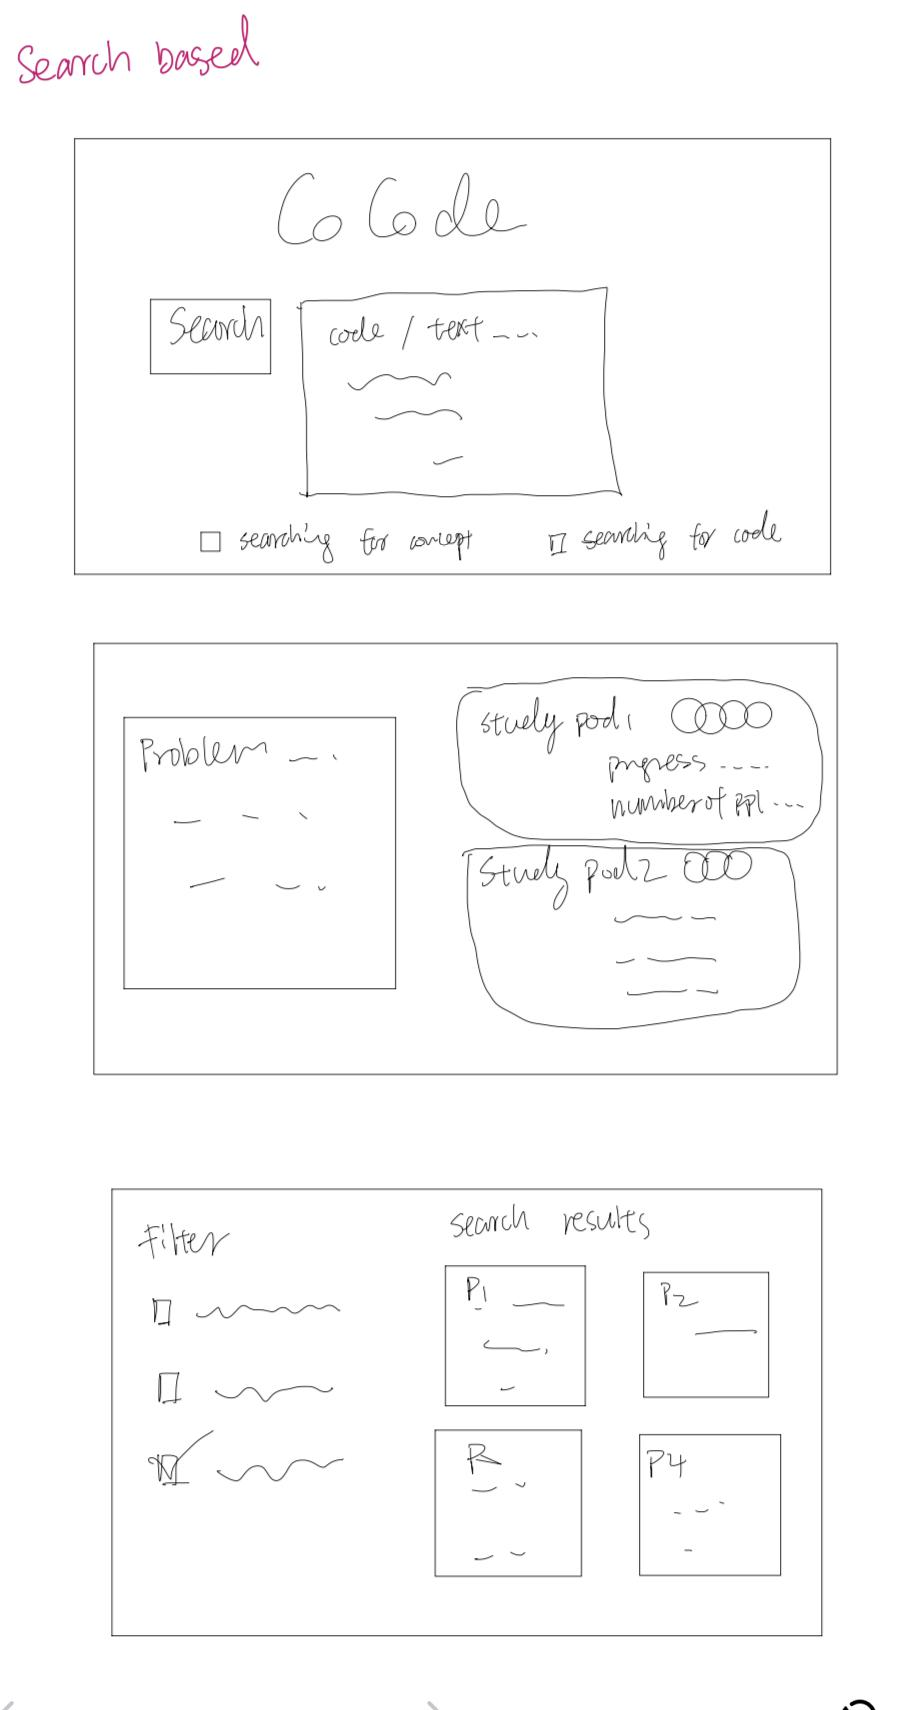 Search based
CoCode
Search
code / text
searching for concept
searching for code
Problem
study pod1
progress
number of ppl
Study pod2
Filter
search results
P1
P2
P4